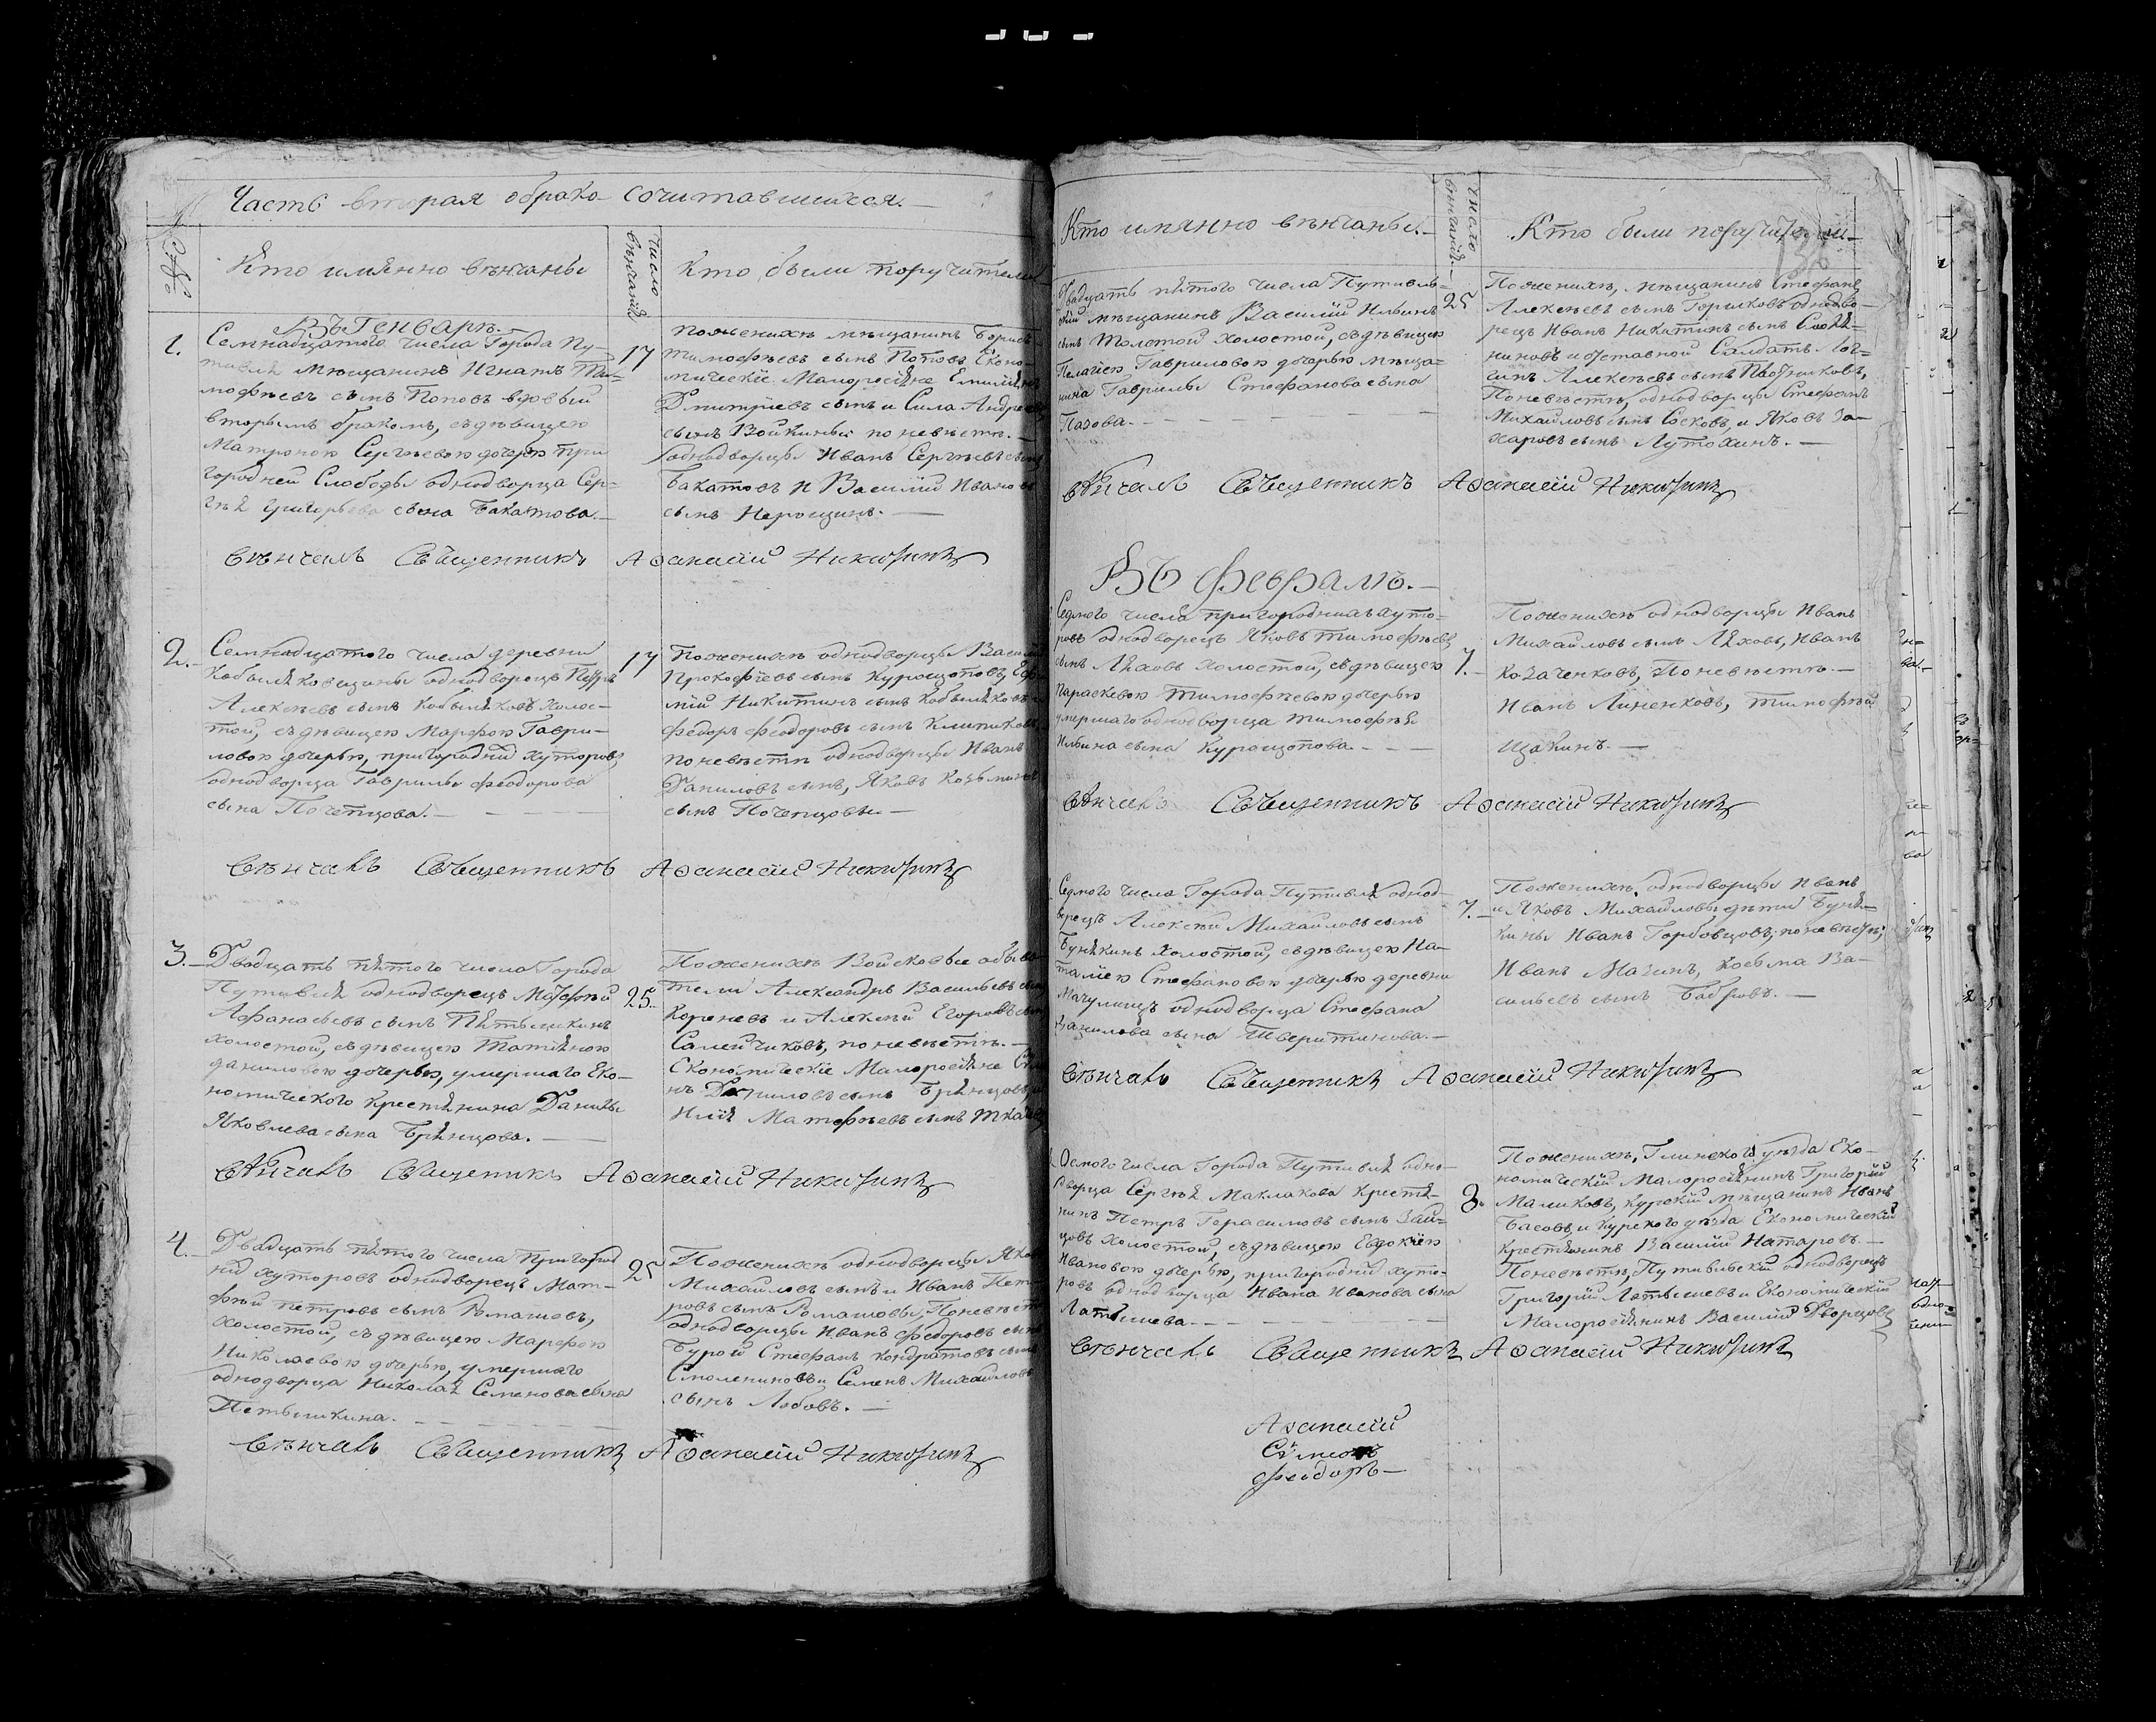 Часть вторая обрако сочитавшихся.—
Кто имянно венчаны
Число венчаній
Кто были поручители
Въ Генваръ.—
1.
Семнадцатого числа Города Пу-
тивля мѣщанинъ Игнатъ Ти-
мофѣевъ сынъ Поповъ вдовый
вторымъ бракомъ, съ дѣвицею
Матроною Сергѣевою дочерью при
городней Слободы однодворца Сер-
гѣя Григорьева сына Бакатова.—
17
По женихѣ мѣщанинъ Борисъ
Тимофѣевъ сынъ Поповъ Еконо-
мическіе Малоросіяне Емилиянъ
Дмитріевъ сынъ и Сила Андреевъ
сынъ Войкины по невѣсте.—
однодворцы Иванъ Сергѣевъ сынъ
Бакатовъ и Василій Ивановъ
сынъ Нерощинъ.—
Венчалъ Священникъ Аѳанасій Никитинъ
2.—
Семнадцатого числа деревни
Кобыляковщины однодворецъ Петръ
Алексѣевъ сынъ Кобыляковъ холос-
той, съ дѣвицею Марфою Гаври-
ловою дочерью, пригородній хуторовъ
однодворца Гаврилы Феодорова
сына Почепцова.—
17
По женихѣ однодворцы Василій
Прокофіевъ сынъ Курощоповъ, Ефи-
мій Никитинъ сынъ Кобыляковъ и
Федоръ Феодоровъ сынъ Климиковъ,
по невѣсти однодворцы Иванъ
Даниловъ сынъ, Яковъ Козьминъ
сынъ Почепцовы—
Венчалъ Священникъ Аѳанасій Никитинъ
3.—
Двадцать пятого числа Города
Путивля однодворецъ Матфѣй
Афанасьевъ сынъ Пятышкинъ
холостой, съ дѣвицею Татіяною
Даниловою дочерью, умершаго Еко-
номического крестьянина Данилы
Яковлева сына Брянцова.—
25.
По женихѣ Войсковые обыва-
тели Александръ Васильевъ сынъ
Кореневъ и Алексѣй Егоровъ сынъ
Салейчиковъ, по невѣсте.—
Економическіе Малоросіяне
Даниловъ сынъ Брянцовъ, и
Илія Матфѣевъ сынъ
Вѣнчалъ Священикъ Аѳанасій Никитинъ
4.—
Двадцать пятого числа пригород
ній хуторовъ однодворецъ Мат-
фѣй Петровъ сынъ Ромашовъ,
холостой, съ дѣвицею Марфою
Николаевою дочерью, умершаго
однодворца Николая Семенова сына
Петышкина.
25
По женихѣ однодворцы Яковъ
Михайловъ сынъ и Иванъ Пет-
ровъ сынъ Ромашовы, По невѣсте
однодворцы Иванъ Федоровъ сынъ
Бурой Стефанъ Кондратовъ сынъ
Смолениновъ и Семенъ Михайловъ
сынъ Лобовъ.—
Венчалъ Священникъ Аѳанасій Никитинъ
Кто имянно вѣнчаны.—
Число вѣнчаній.—
Кто были поручители—
Двадцать пятого числа Путивль-
скій мѣщанинъ Василій Ильинъ
сынъ Толстой холостой, съ дѣвицею
Пелагіею Гавриловою дочерью мѣща-
нина Гаврилы Стефанова сына
Пазова.—
25
По женихѣ, мѣщанинъ Стефанъ
Алексѣевъ сынъ Горшковъ однодво-
рецъ Иванъ Никитинъ сынъ
и отставной Салдатъ Лог-
гинъ Алексѣевъ сынъ
По невѣсте, однодворцы Стефанъ
Михайловъ сынъ Сосковъ, и Яковъ За-
харовъ сынъ Лутохинъ.—
вѣнчалъ Священникъ Аѳанасій Никитинъ
Въ Февралѣ.—
Седмого числа пригороднихъ хуто-
ровъ однодворецъ Яковъ Тимофѣевъ
сынъ Ляховъ холостой, съ дѣвицею
Параскевою Тимофѣевою дочерью
умершаго однодворца Тимофѣя
Ильина сына Курощопова.—
7.—
По женихѣ однодворцы Иванъ
Михайловъ сынъ Ляховъ, Иванъ
Козаченковъ, По невѣсте.—
Иванъ Линенковъ, Тимофѣй
Щакинъ.—
вѣнчалъ Священникъ Аѳанасій Никитинъ
Седмого числа Города Путивля однод-
ворецъ Алексѣй Михайловъ сынъ
Бунякинъ холостой, съ дѣвицею На-
таліею Стефановою дочерью деревни
Мачулищъ однодворца Стефана
Данилова сына Тверитинова.—
7.—
По женихѣ, однодворцы Иванъ
и Яковъ Михайловы дѣти Буня-
кины Иванъ Горбовцовъ, по невѣсте,
Иванъ Мачинъ, Косьма Ва-
сильевъ сынъ Бабровъ.—
Вѣнчалъ Священникъ Аѳанасій Никитинъ
Осмого числа Города Путивля одно-
дворца Сергѣя Маклакова крестья-
нинъ Петръ Герасимовъ сынъ Зай-
цовъ холостой, съ дѣвицею Евдокіею
Ивановою дочерью, пригородній хуто-
ровъ однодворца Ивана Иванова сына
Латышева.—
8.
По женихѣ, Глинского уѣзда Еко-
номическій Малоросіянинъ Григорій
Маликовъ, Курскій мѣщанинъ Иванъ
Басовъ, и Курского уѣзда Економическій
крестьянинъ Василій Натаровъ.—
По невѣсте, Путивльскій однодворецъ
Григорій Латышевъ и Економическій
Малоросіянинъ Василій Дворцовъ
Вѣнчалъ Священникъ Аѳанасій Никитинъ
Аѳанасій
Симонъ
Феодоръ—